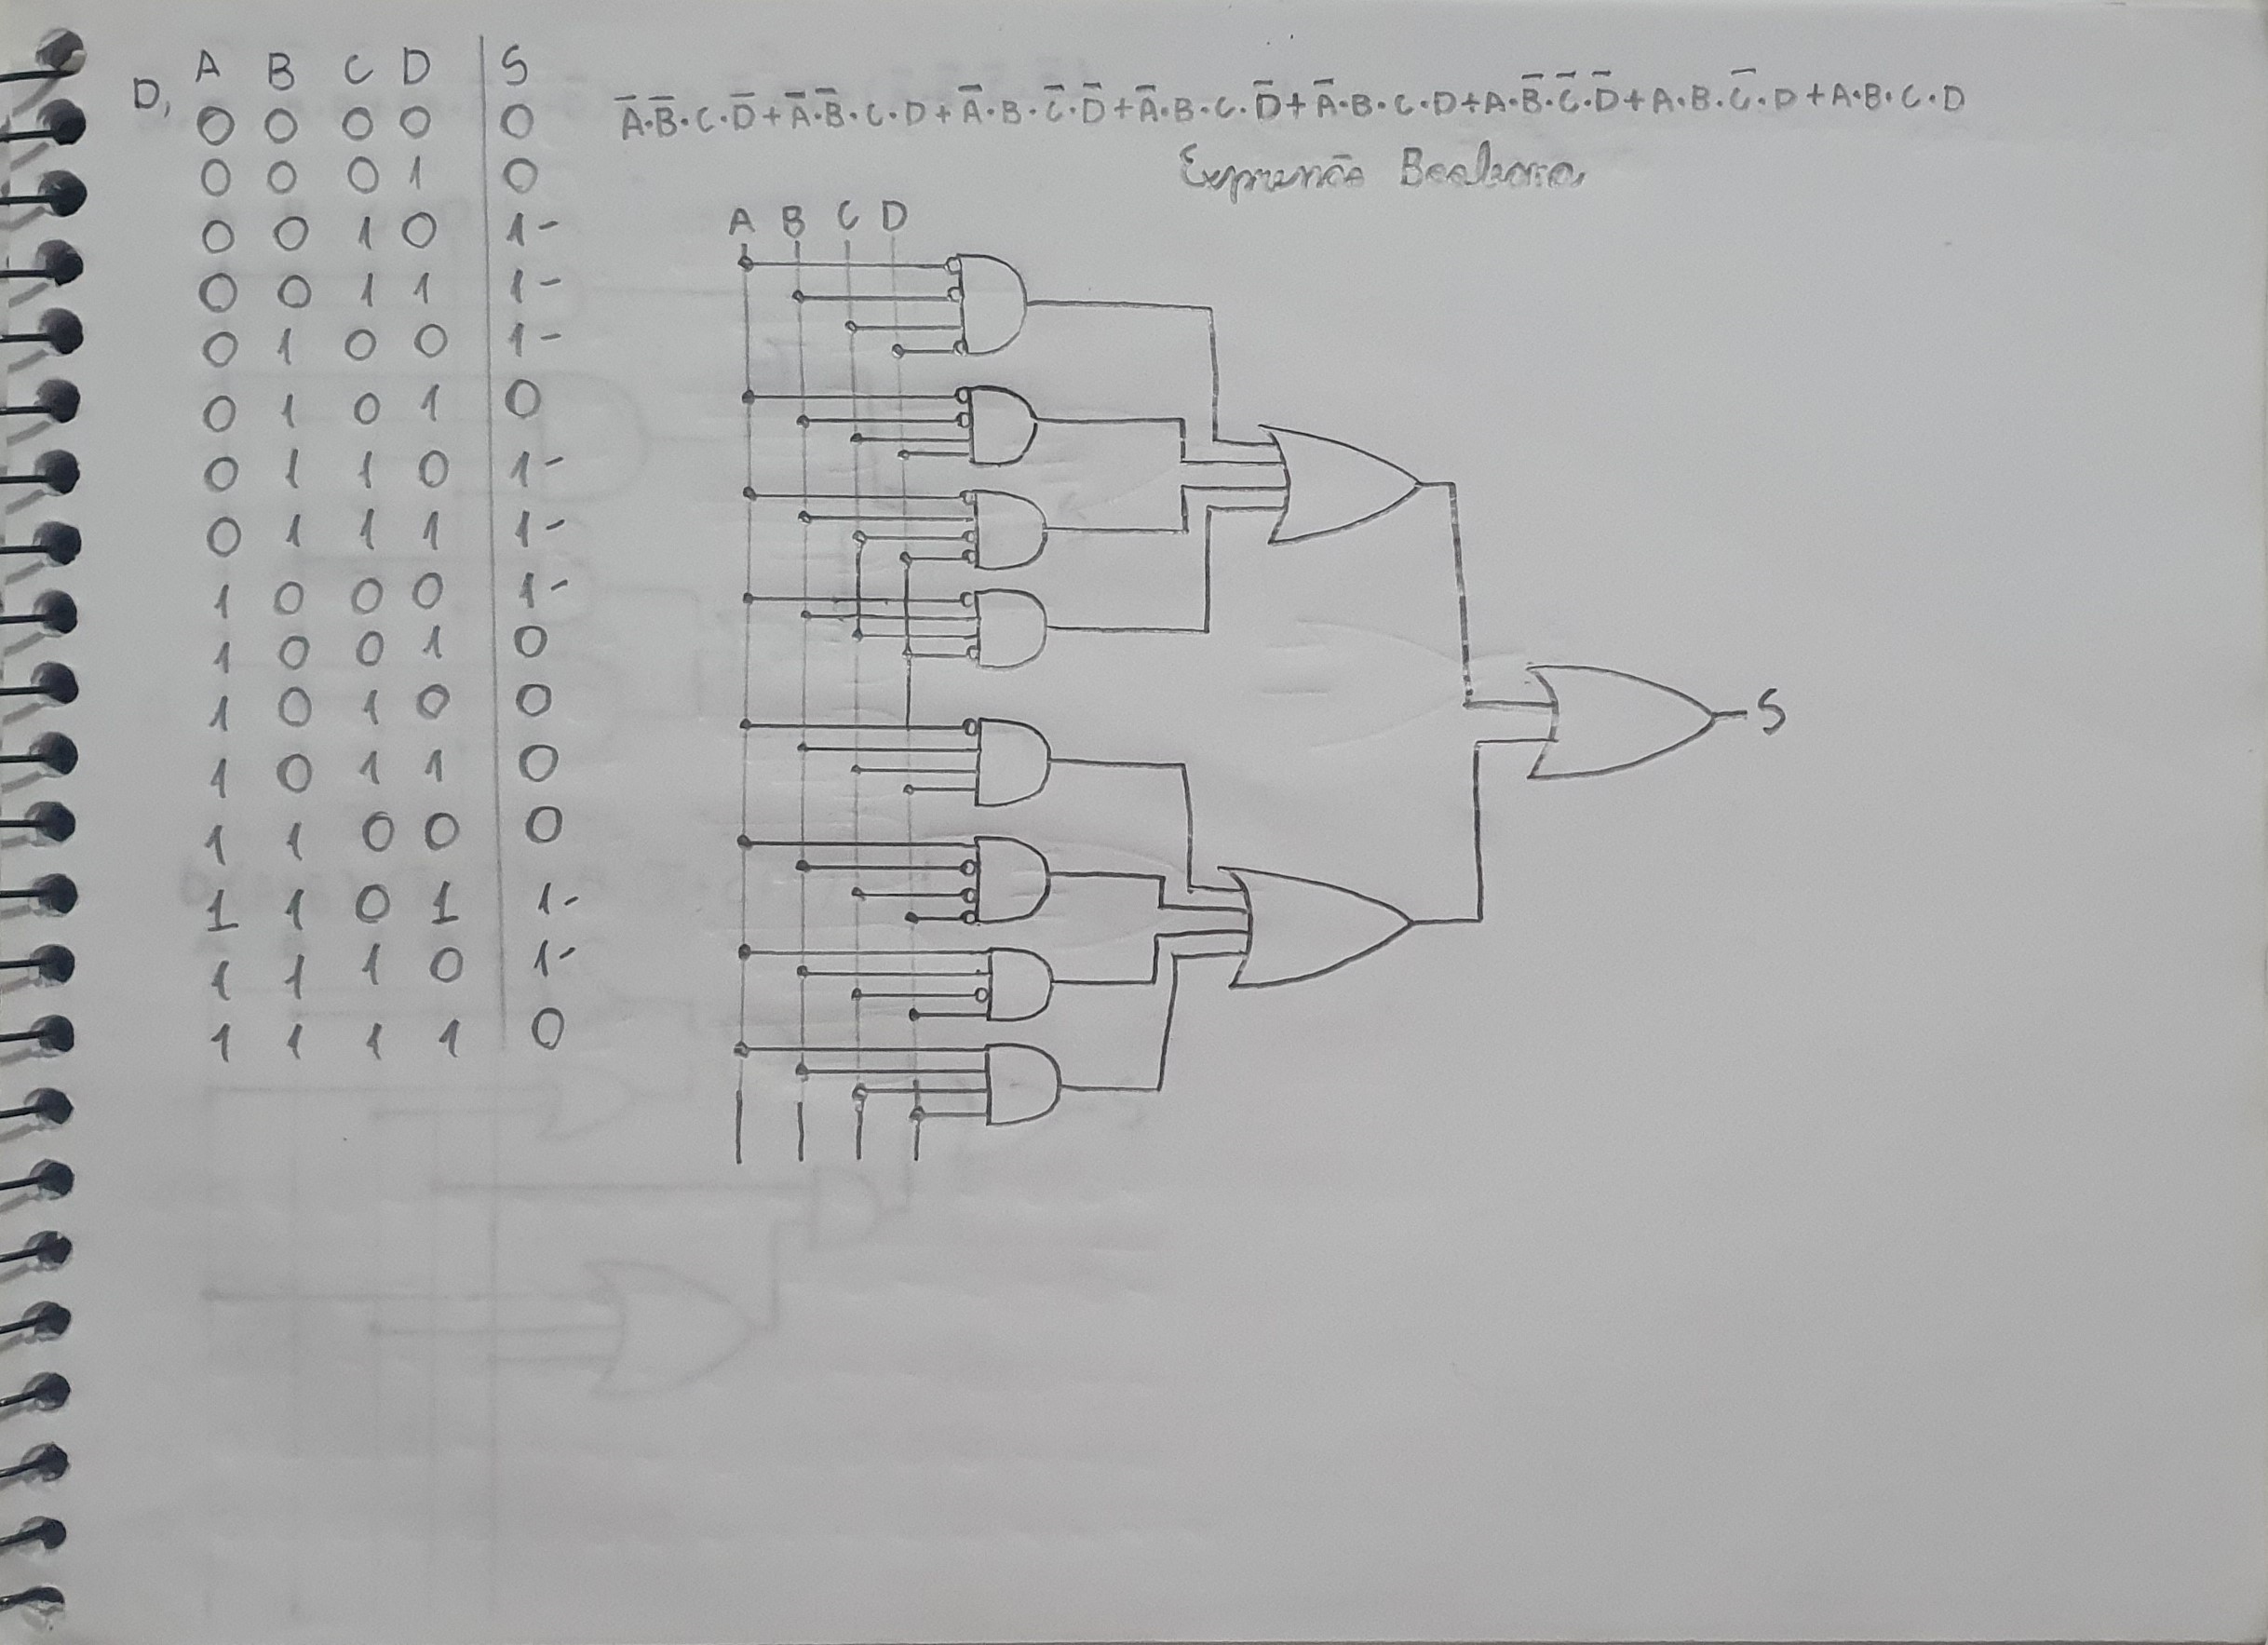 D,
A B C D S
0 0 0 0 0
0 0 0 1 0
0 0 1 0 1-
0 0 1 1 1-
0 1 0 0 1-
0 1 0 1 0
0 1 1 0 1-
0 1 1 1 1-
1 0 0 0 1-
1 0 0 1 0
1 0 1 0 0
1 0 1 1 0
1 1 0 0 0
1 1 0 1 1-
1 1 1 0 1-
1 1 1 1 0
A̅·B̅·C·D̅+A̅·B̅·C·D+A̅·B·C̅·D̅+A̅·B·C·D̅+A̅·B·C·D+A·B̅·C̅·D̅+A·B·C̅·D+A·B·C·D
Expressão Booleana
A B C D
S